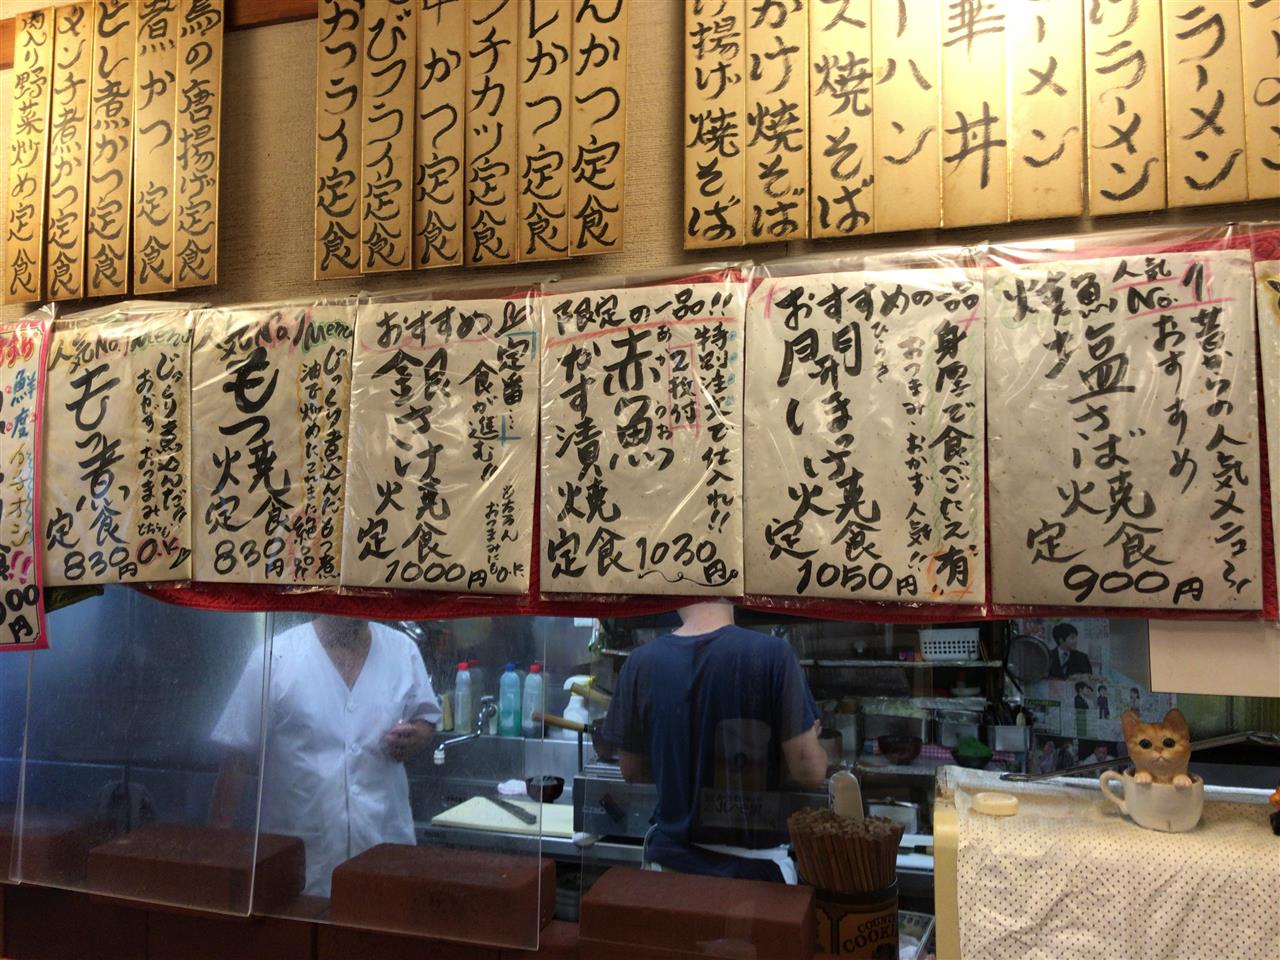 肉入り野菜炒め定食
メンチ煮かつ定食
とじ煮かつ定食
煮かつ定食
の唐揚げ定食
かつライ定食
びフライ定食
かつ定食
ンチカツ定食
しかつ定食
んかつ定食
け揚げ焼そば
かけ焼そば
ス焼そば
ーハン
華丼
ーメン
けラーメン
ラーメン
鮮度
人気No.1 Menu
じっくり煮込んだ!!
おかず・おつまみ
もつ煮定食
830円
人気No.1 Menu
じっくり煮込んだもつ煮
油で炒めたこれまた絶品!!
もつ焼定食
830円
おすすめ
定番…
食が進む!!
もちろん
おつまみにもO.K
銀さけ焼定食
1000円
限定の一品!!
特別注文で仕入れ!!
2枚付
あかうお
赤魚
かす漬焼
定食1030円
おすすめの一品
身厚で食べごたえ有!!
おつまみ・おかず人気!!
ひらき
開ほっけ焼定食
1050円
焼魚人気No.1
昔からの人気メニュー!!
おすすめ
塩さば焼定食
900円
COUNTRY
COOKI